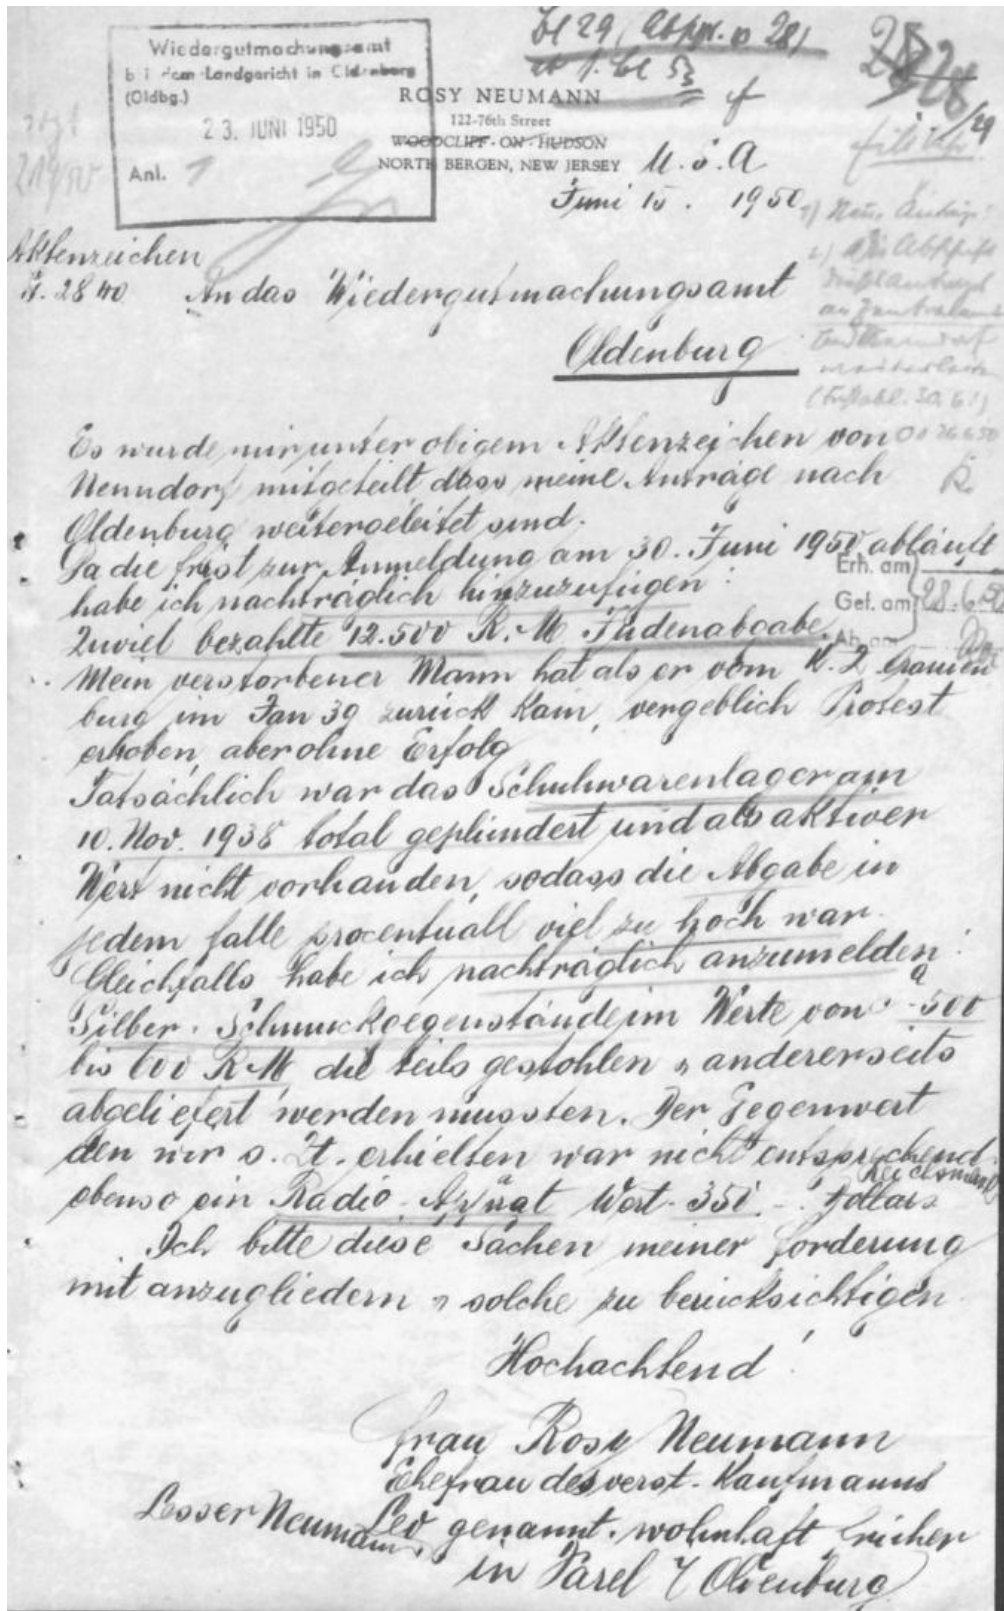 Wiedergutmachungsamt
bei dem Landgericht in Oldenburg
(Oldbg.)
23. JUNI 1950
Anl. 1
Bl 29 (Abschr. 28)
28
29
ROSY NEUMANN
122-76th Street
WOODCLIFF-ON-HUDSON
NORTH BERGEN, NEW JERSEY U. S. A
Juni 15. 1950
Aktenzeichen
2840 An das Wiedergutmachungsamt
Oldenburg
Es wurde mir unter obigem Aktenzeichen von
Nenndorf mitgeteilt dass meine Anträge nach
Oldenburg weitergeleitet sind.
Da die Frist zur Anmeldung am 30. Juni 1950 abläuft
habe ich nachträglich hinzuzufügen:
Zuviel bezahlte 12.500 R.M Judenabgabe.
Erh. am
Gef. am 28.6.50
Ab am
Mein verstorbener Mann hat als er vom K. Z Oranien
burg im Jan 39 zurück kam, vergeblich Protest
erhoben, aber ohne Erfolg
Tatsächlich war das Schuhwarenlager am
10. Nov. 1938 total geplündert und als aktiver
Wert nicht vorhanden, sodass die Abgabe in
jedem falle procentuall viel zu hoch war.
Gleichfalls habe ich nachträglich anzumelden:
Silber. Schmuckgegenstände im Werte von ca -500
bis 600 RM die teils gestohlen u andererseits
abgeliefert werden mussten. Der Gegenwert
den wir s. Zt. erhielten war nicht entsprechend
Reichsmark
ebenso ein Radio-Apparat Wert. 350.-. Dollars
Ich bitte diese Sachen meiner Forderung
mit anzugliedern u solche zu berücksichtigen.
Hochachtend!
Frau Rosy Neumann
Ehefrau des verst. Kaufmanns
Lesser Neumann, Leo genannt. wohnhaft früher
in Varel / Oldenburg